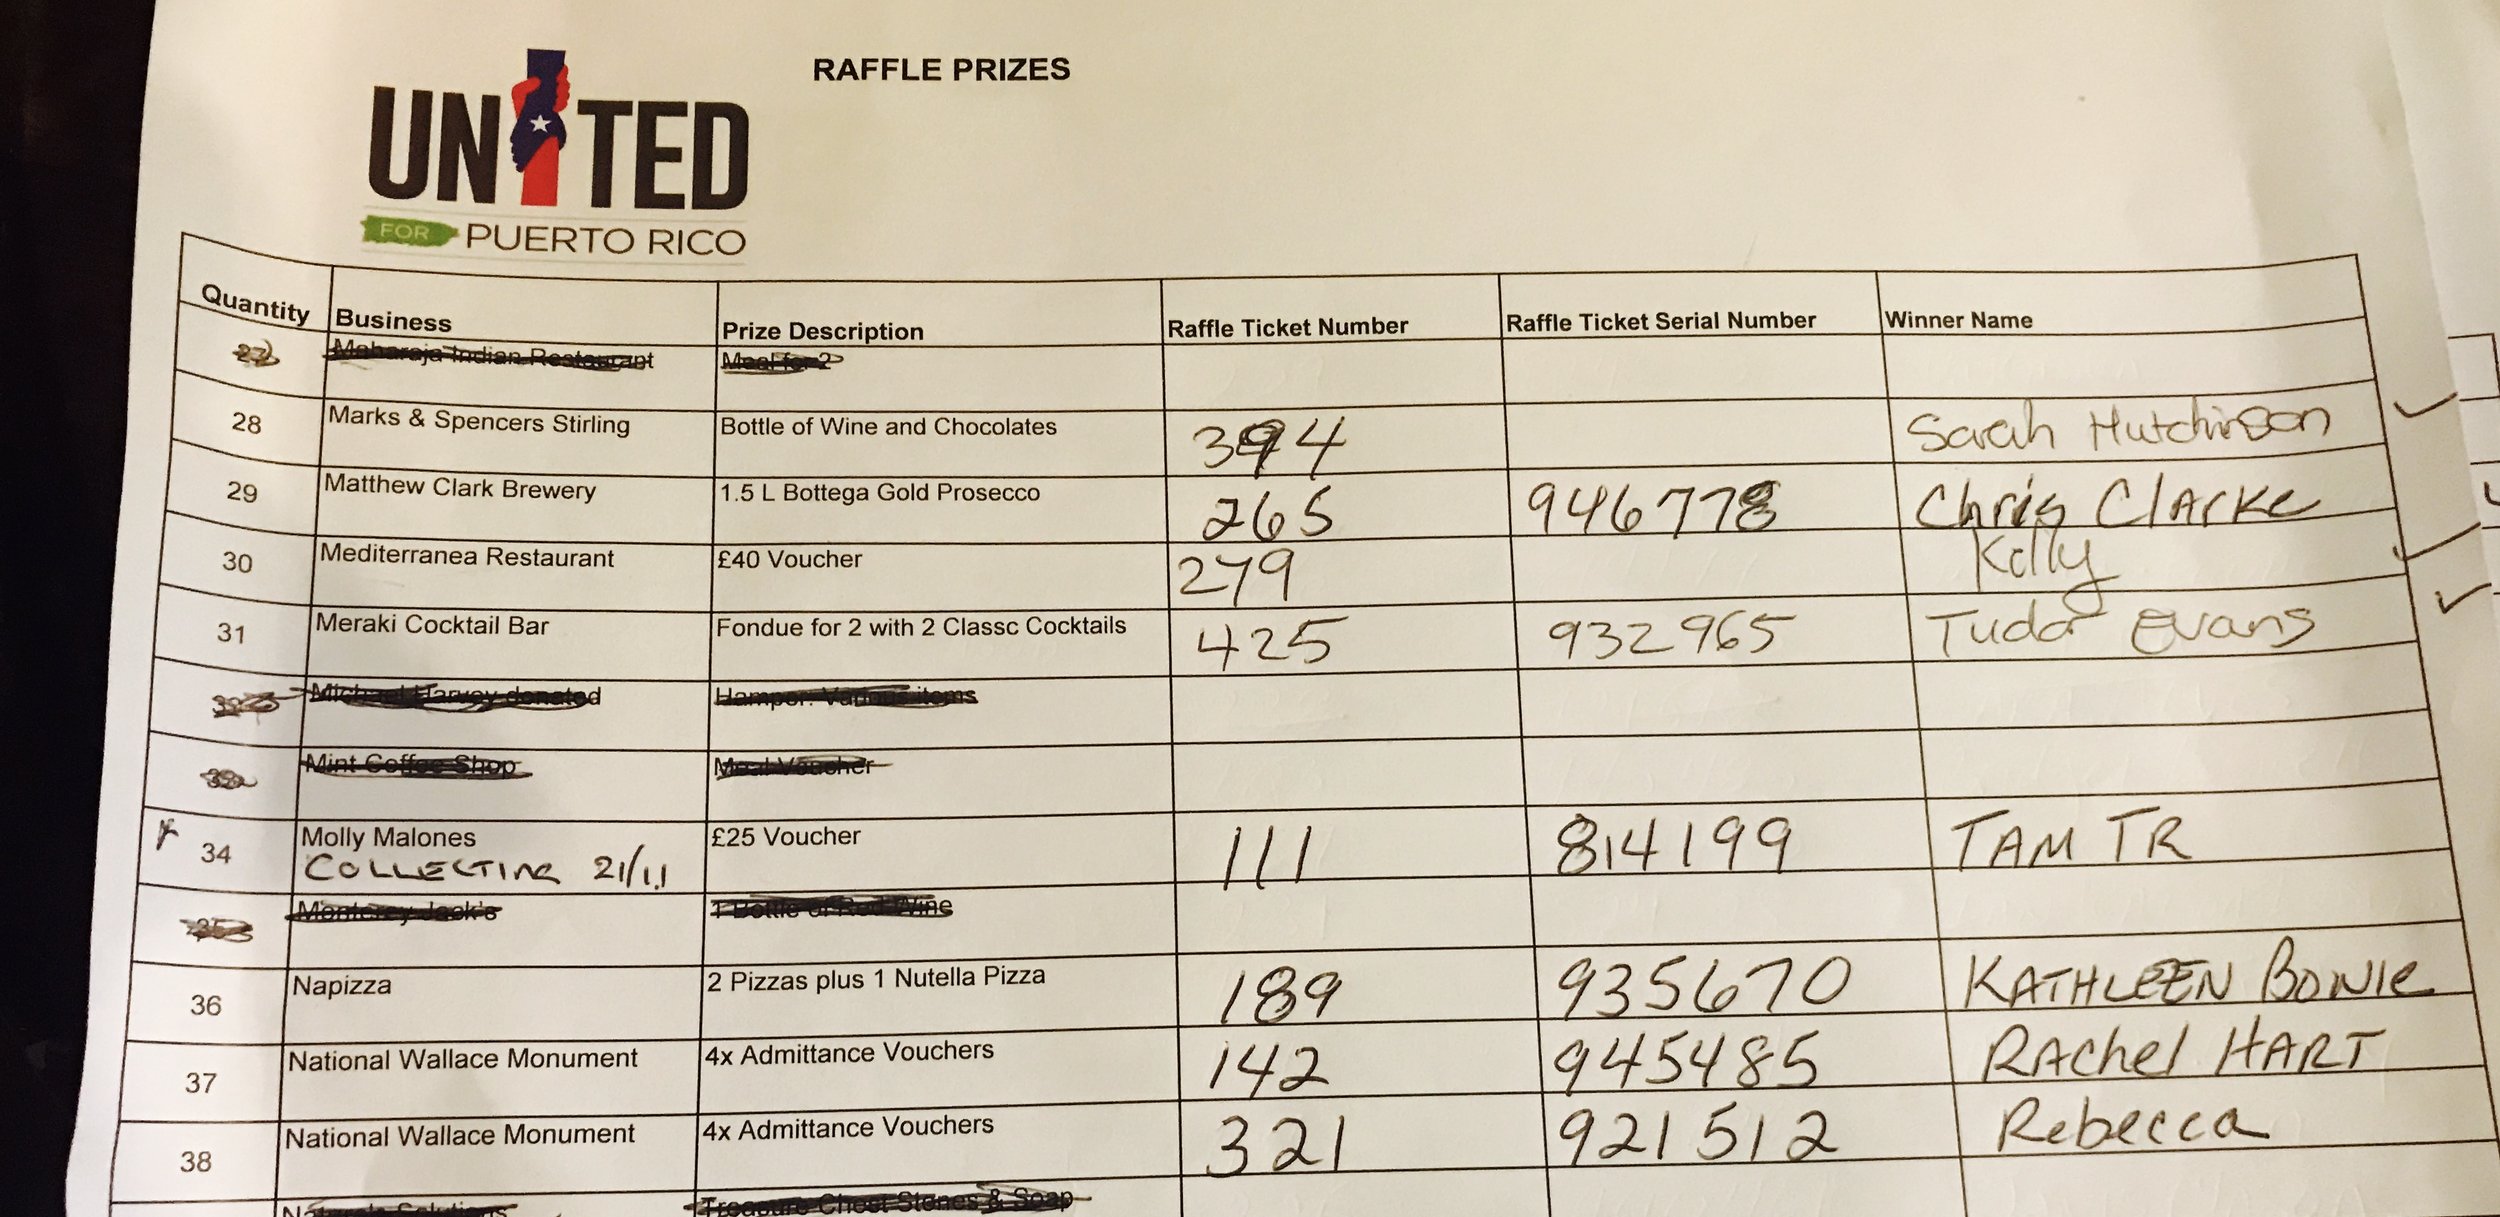 RAFFLE PRIZES
UNITED
FOR PUERTO RICO
Quantity Business Prize Description Raffle Ticket Number Raffle Ticket Serial Number Winner Name
27 Maharaja Indian Restaurant Meal for 2
28 Marks & Spencers Stirling Bottle of Wine and Chocolates 394 Sarah Hutchinson
29 Matthew Clark Brewery 1.5 L Bottega Gold Prosecco 265 946778 Chris Clarke
30 Mediterranea Restaurant £40 Voucher 279 Kelly
31 Meraki Cocktail Bar Fondue for 2 with 2 Classc Cocktails 425 932965 Tudor Evans
Michael Harvey donated Hamper: Various items
Mint Coffee Shop Meal Voucher
34 Molly Malones £25 Voucher 111 814199 TAM TR
COLLECTING 21/11
35 Monterey Jack's 1 Bottle of Red Wine
36 Napizza 2 Pizzas plus 1 Nutella Pizza 189 935670 KATHLEEN BOWIE
37 National Wallace Monument 4x Admittance Vouchers 142 945485 RAChel HART
38 National Wallace Monument 4x Admittance Vouchers 321 921512 Rebecca
Nature's Solutions Treasure Chest Stones & Soap